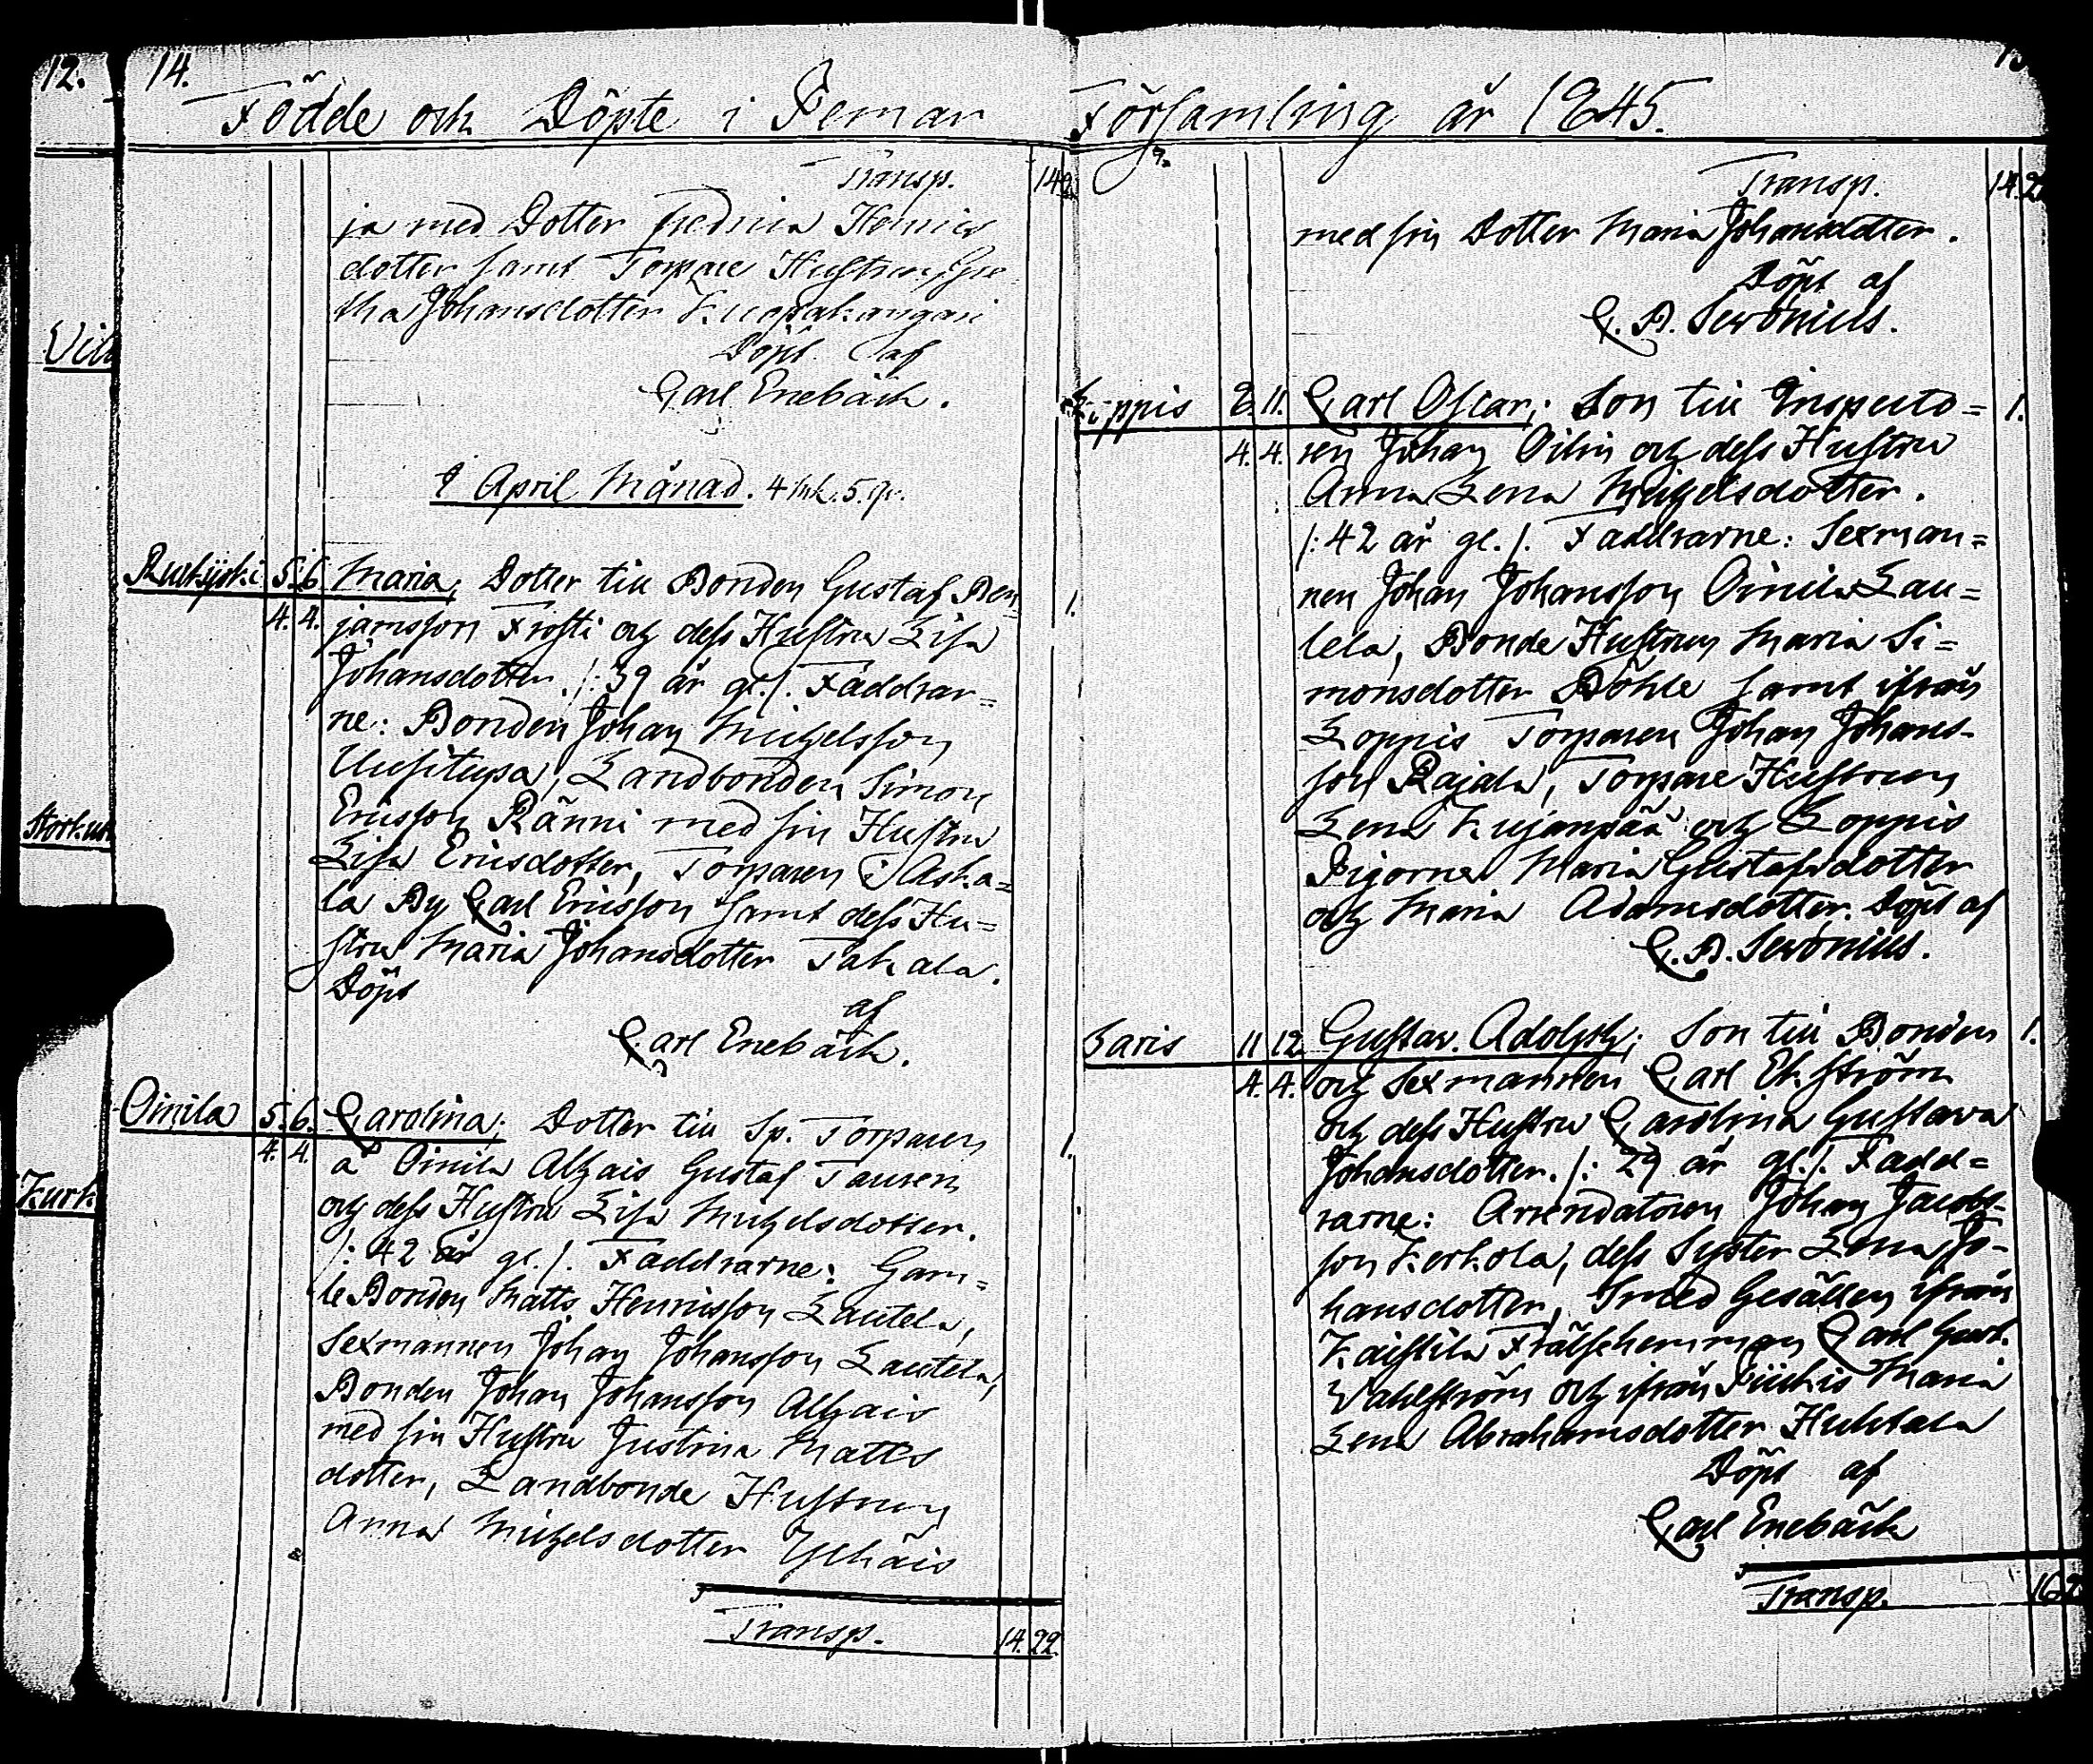 12.
14.
Födde och Döpte i Pemar Församling år 1845.
Transp.
ja med Dotter Fredrica Henrics
dotter samt Torpare Hustrun Gre
tha Johansdotter Kuopakangari
Döpt af
Carl Enebäck.
I April Månad. 4 mk. 5. qv.
5. 6. Maria; Dotter till Bonden Gustaf Ben= 1.
4. 4. jamsson Frosti och dess Hustru Lisa
Johansdotter. /: 39 år gl. /. Faddrar=
ne: Bonden Johan Michelsson
Uusitupa, Landbonden Simon
Ericsson Ränni med sin Hustru
Lisa Ericsdotter, Torparen i Aska=
la By Carl Ericsson samt dess Hu=
stru Maria Johansdotter Takala.
Döpt
af
Carl Enebäck.
Oinila 5. 6. Carolina; Dotter till Sp. Torparen 1.
4. 4. a Oinila Alhais Gustaf Tauren
och dess Hustru Lisa Michelsdotter.
/: 42 år gl. /. Faddrarne: Gam=
le Bonden Matts Henricsson Lautela,
Sexmannen Johan Johansson Lautela,
Bonden Johan Johansson Alhais
med sin Hustru Justina Matts
dotter, Landbonde Hustrun
Anna Michelsdotter Ylhäis
Transp. 14. 22.
Transp. 14. 2
med sin Dotter Maria Johansdotter.
Döpt af
C. B. Serönius.
Loppis 8. 11. Carl Oscar; Son till Inspecto= 1.
4. 4. ren Johan Oilin och dess Hustru
Anna Lena Michelsdotter.
/: 42 år gl. /. Faddrarne: Sexman=
nen Johan Johansson Oinila Lau=
tela, Bonde Hustrun Maria Si=
monsdotter Böhle samt ifrån
Loppis Torparen Johan Johans-
son Rajala, Torpare Hustrun
Lena Kujanpää och Loppis
Pigorne Maria Gustafsdotter
och Maria Adamsdotter. Döpt af
C. B. Serönius.
Saris 11 12. Gustav. Adolph; Son till Bonden 1.
4. 4. och Sexmannen Carl Ekström
och dess Hustru Carolina Gustava
Johansdotter. /: 29 år gl. /. Fadd=
rarne: Arrendatoren Johan Jacobs-
son Kerkola, dess Syster Lena Jo-
hansdotter, Smed Gesällen ifrån
Kaistila Frälsehemman Carl Gust.
Wahlström och ifrån Piikis Maria
Lena Abrahamsdotter Huhtala
Döpt af
Carl Enebäck
Transp.